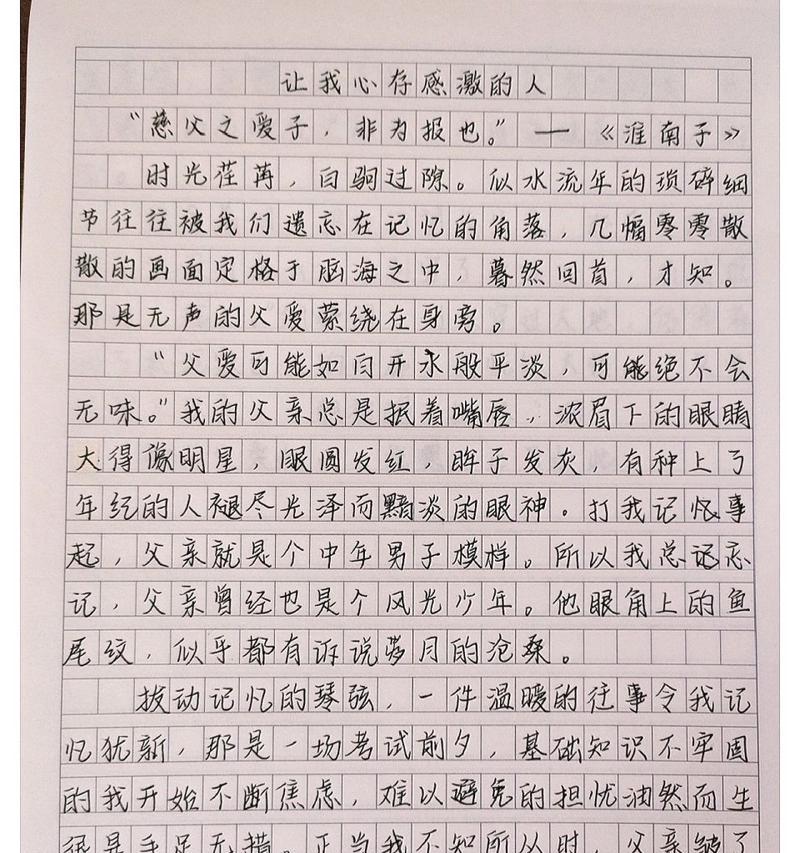 让我心存感激的人
“慈父之爱子，非为报也。”—《淮南子》
时光荏苒，白驹过隙。似水流年的琐碎细
节往往被我们遗忘在记忆的角落，几幅零零散
散的画面定格于脑海之中，暮然回首，才知。
那是无声的父爱萦绕在身旁。
“父爱可能如白开水般平淡，可能绝不会
无味。”我的父亲总是抿着嘴唇，浓眉下的眼睛
大得像明星，眼圆发红，眸子发灰，有种上了
年纪的人褪尽光泽而黯淡的眼神。打我记忆事
起，父亲就是个中年男子模样。所以我总记忘
记，父亲曾经也是个风光少年。他眼角上的鱼
尾纹，似乎都有诉说岁月的沧桑。
拨动记忆的琴弦，一件温暖的往事令我记
忆犹新，那是一场考试前夕，基础知识不牢固
的我开始不断焦虑，难以避免的担忧油然而生
很是手足无措。正当我不知所以时，父亲